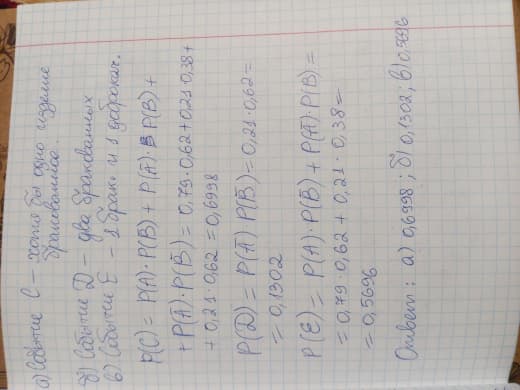 а) Событие C – хотя бы одно изделие
бракованное.
б) Событие D – два бракованных
в) Событие E – 1 брак. и 1 доброкач.
P(C) = P(A)·P(B̅) + P(A̅)·P(B) +
+ P(A̅)·P(B̅) = 0,79·0,62 + 0,21·0,38 +
+ 0,21·0,62 = 0,6998
P(D) = P(A̅) P(B̅) = 0,21·0,62 =
= 0,1302
P(E) = P(A)·P(B̅) + P(A̅)·P(B) =
= 0,79·0,62 + 0,21·0,38 =
= 0,5696
Ответ: а) 0,6998; б) 0,1302; в) 0,5696